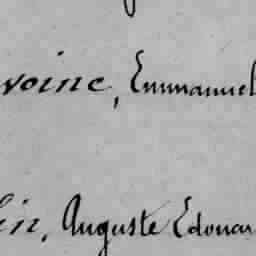 voine, Emmanuel
in, Auguste Edouar